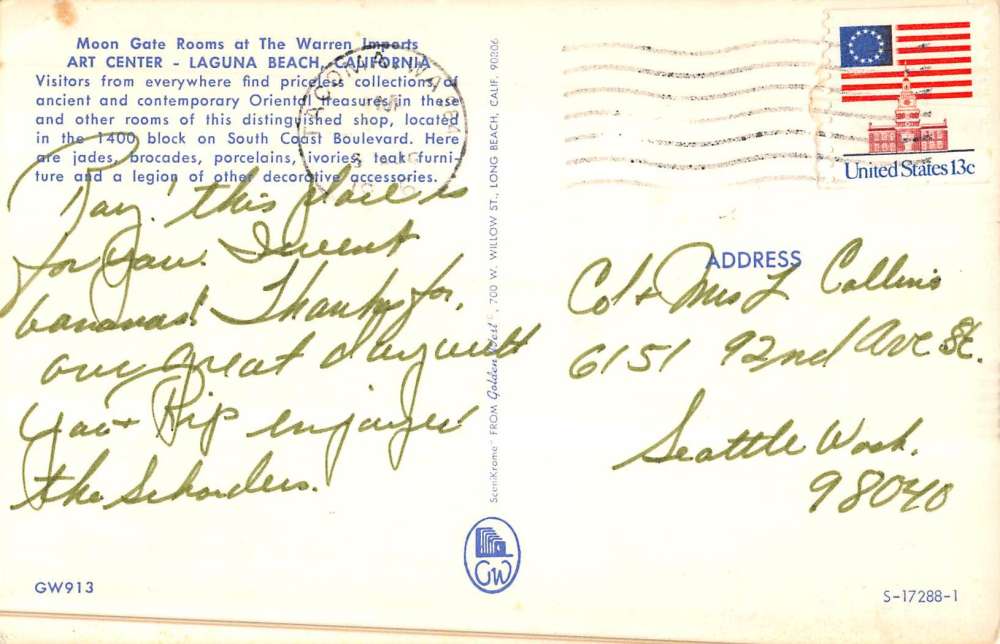 Moon Gate Rooms at The Warren Imports
ART CENTER - LAGUNA BEACH, CALIFORNIA
Visitors from everywhere find priceless collections of
ancient and contemporary Oriental treasures in these
and other rooms of this distinguished shop, located
in the 1400 block on South Coast Boulevard. Here
are jades, brocades, porcelains, ivories, teak furni-
ture and a legion of other decorative accessories.
Ray! this place is
for you. I went
bananas! Thanks for
our great day with
you + Rip enjoyed
the
GW913
SceniKrome FROM Golden West, 700 W. WILLOW ST., LONG BEACH, CALIF. 90806
GW
TACOMA, WA 984
United States 13c
ADDRESS
Col + Mrs L Collins
6151 92nd Ave SE.
Seattle Wash.
98040
S-17288-1